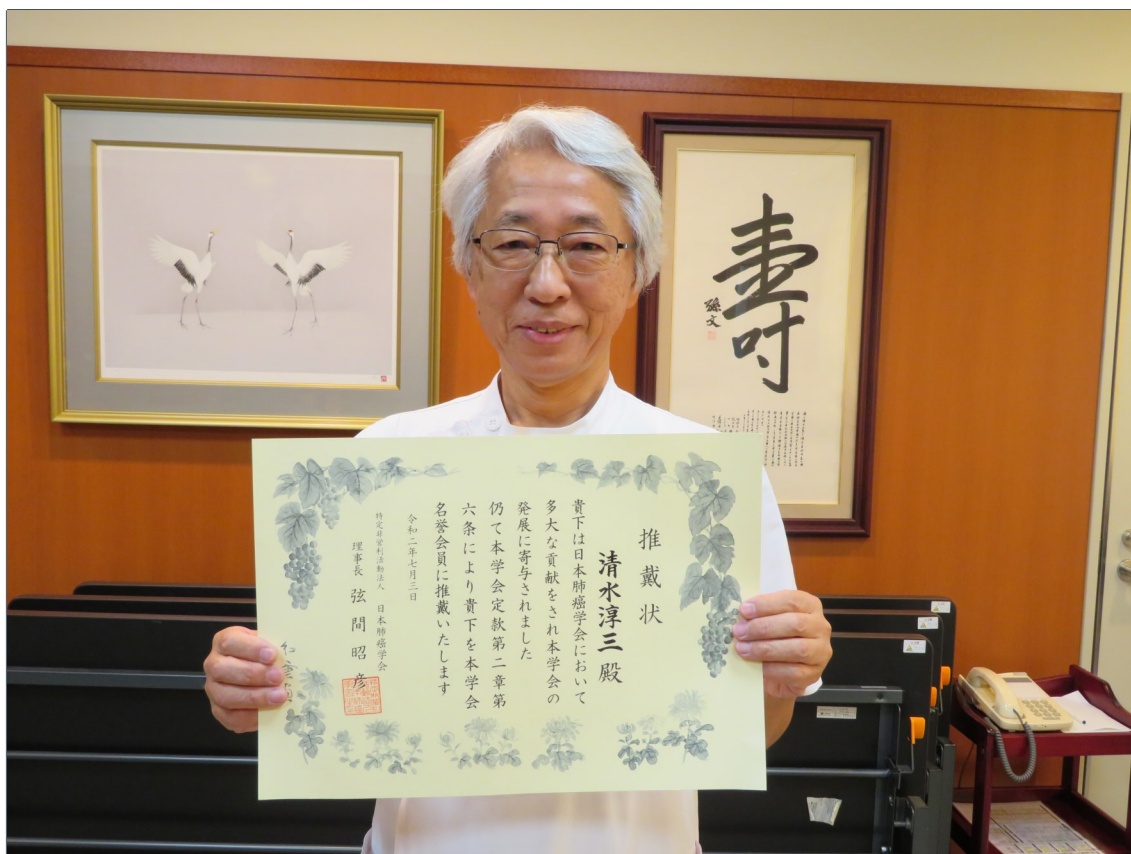 推戴状
清水淳三殿
貴下は日本肺癌学会において
多大な貢献をされ本学会の
発展に寄与されました
仍て本学会定款第二章第
六条により貴下を本学会
名誉会員に推戴いたします
令和二年七月三日
特定非営利活動法人 日本肺癌学会
理事長 弦間昭彦
壽
孫文